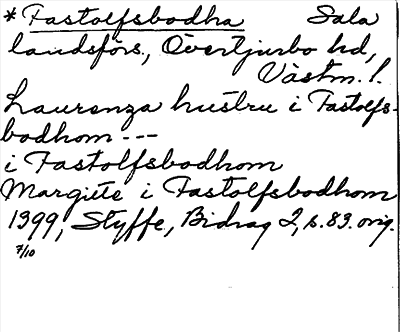 *Fastolfsbodha Sala
landsförs., Övertjurbo hd,
Västm. l.
Laurenza hustru i Fastolfs-
bodhom ---
i Fastolfsbodhom
Margiute i Fastolfsbodhom
1399, Styffe, Bidrag 2, s. 83. orig.
7/10